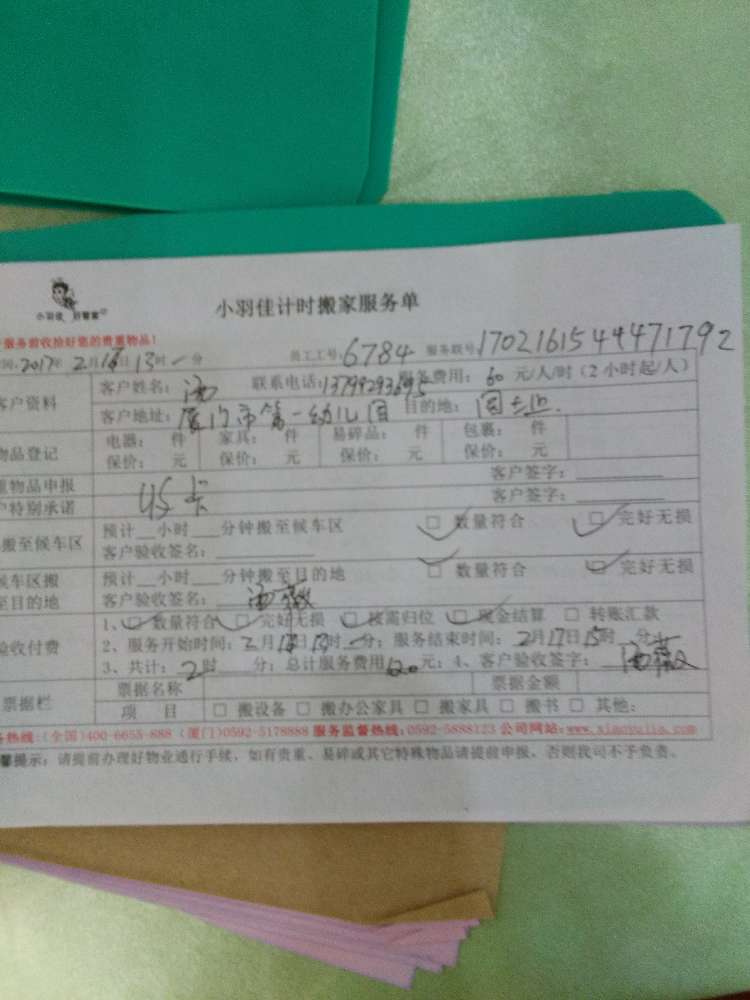 小羽佳 好管家
小羽佳计时搬家服务单
服务前收拾好您的贵重物品!
间:2017年2月 日13时一分 员工工号:6784 服务联号:1702161544471792
客户资料 客户姓名:汤 联系电话:13799293695 服务费用:60元/人/时(2小时起/人)
客户地址:厦门市第一幼儿园 目的地:
物品登记 电器: 件 家具: 件 易碎品: 件 包裹: 件
保价: 元 保价: 元 保价: 元 保价: 元
重物品申报 客户签字:
户特别承诺 客户签字:
搬至候车区 预计__小时__分钟搬至候车区 □ 数量符合 □ 完好无损
客户验收签名:
候车区搬 预计__小时__分钟搬至目的地 □ 数量符合 □ 完好无损
至目的地 客户验收签名:汤薇
验收付费 1、□ 数量符合 □ 完好无损 □ 按需归位 □ 现金结算 □ 转账汇款
2、服务开始时间:2月 日13时一分;服务结束时间:2月17日15时 分
3、共计:2时 分;总计服务费用120元;4、客户验收签字:汤薇
票据栏 票据名称 票据金额
项 目 □ 搬设备 □ 搬办公家具 □ 搬家具 □ 搬书 □ 其他:
务热线:(全国)400-6655-888(厦门)0592-5178888 服务监督热线:0592-5888123 公司网站:www.xiaoyujia.com
馨提示:请提前办理好物业通行手续,如有贵重、易碎或其它特殊物品请提前申报,否则我司不予负责。